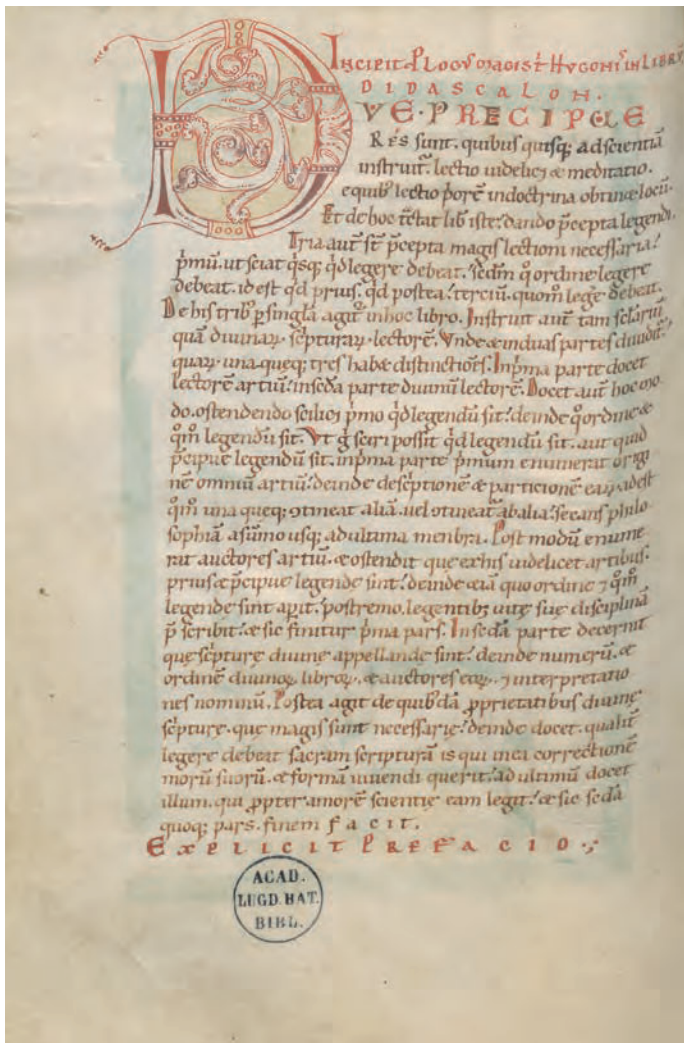 Incipit Plogus magist̄ Hugonis in librū
DIDASCALON.
DVE · PRECIPUE
Res sunt. quibus quisq; ad scientiā
instruit̄. lectio uidelicȝ & meditatio.
e quib' lectio p̄orē in doctrina obtinet locū.
Et de hoc t̄ctat lib̄ iste. dando p̄cepta legendi.
Tria aut̄ st̄ p̄cepta magis lectioni necessaria.
p̄mū. ut sciat q̇sq; q̇d legere debeat. sed̄m q̊ ordine legere
debeat. id est q̇d prius. q̇d postea. terciū. quom̊ leḡe debeat.
De his trib' p̱ singła agit̄ in hoc libro. Instruit aut̄ tam sc̄lariū
quā diuinaꝝ scripturaꝝ lectorē. Vnde & in duas partes diuidit̄.
quaꝝ una queq; tres habet distinctiōs. In p̄ma parte docet
lectorē artiū. in sc̄da parte diuinū lectorē. Docet aut̄ hoc mo
do. ostendendo scilicȝ p̄mo q̇d legendū sit. deinde q̊ ordine &
q̊m̊ legendū sit. Vt g̊ sciri possit q̇d legendū sit. aut quid
p̄cipue legendū sit. in p̄ma parte p̄mum enumerat origi
nē omniū artiū. deinde desc̄ptionē & particionē eaꝝ. id est
q̊m̊ una queq; ꝯtineat aliā. uel ꝯtineat̄ ab alia. secans philo
sophiā a sūmo usq; ad ultima menbra. Post modū enume
rat auctores artiū. & ostendit que ex his uidelicet artibus.
prius & p̄cipue legende sint. deinde etiā quo ordine ⁊ q̊m̊
legende sint ap̱it. postremo. legentibȝ uitę suę disciplinā
p̄scribit. & sic finitur p̄ma pars. In sc̄da parte decernit
que sc̄pturę diuinę appellande sint. deinde numerū. &
ordinē diuinoꝝ libroꝝ. & auctores eoꝝ. ⁊ interpretatio
nes nominū. Postea agit de quib'dā p̱prietatibus diuinę
sc̄pturę. que magis sunt necessarię. deinde docet. qualit̄
legere debeat sacram scripturā is qui in ea correctionē
morū suorū. & formā uiuendi querit. ad ultimū docet
illum. qui p̱pter amorē scientię eam legit. & sic sc̄da
quoq; pars. finem facit.
EXPLICIT PREFACIO.;
ACAD.
LUGD. BAT.
BIBL.